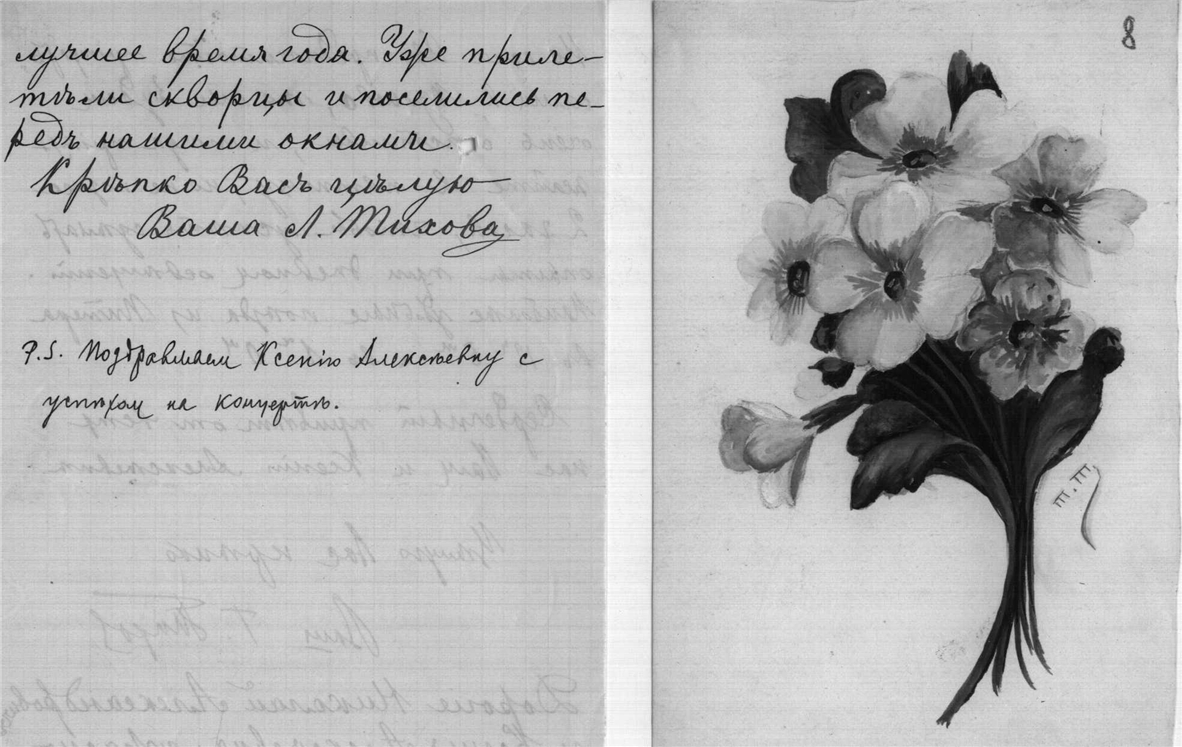 лучшее время года. Уже приле-
тѣли скворцы и поселились пе-
редъ нашими окнами.
Крѣпко Васъ цѣлую
Ваша Л. Тихова
P.S. Поздравляем Ксенію Алексѣевну с
успѣхом на концертѣ.
8